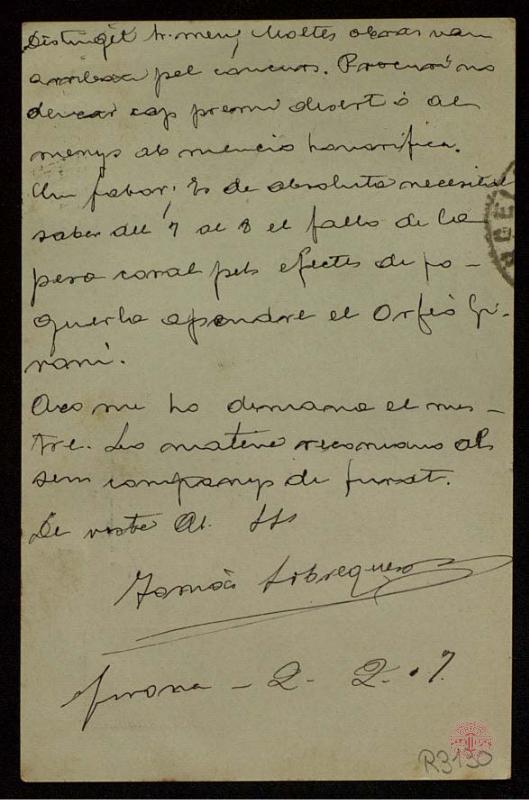 Distingit Sr. meu; Moltes obras van
arribar pel concurs. Procuri no
deixar cap premi desert ó al
menys ab menció honorifica.
Un fabor: Es de absoluta necesitat
saber del 7 al 8 el fallo de la
pessa coral pels efectes de po-
guerla apendre el Orfeó Gi-
roní.
Axo me ho demana el mes-
tre. Lo mateix recomano als
seus companys de Jurat.
De vosté At. SS
Tomás Sobrequés
Girona - 2. 2. 07.
R3130